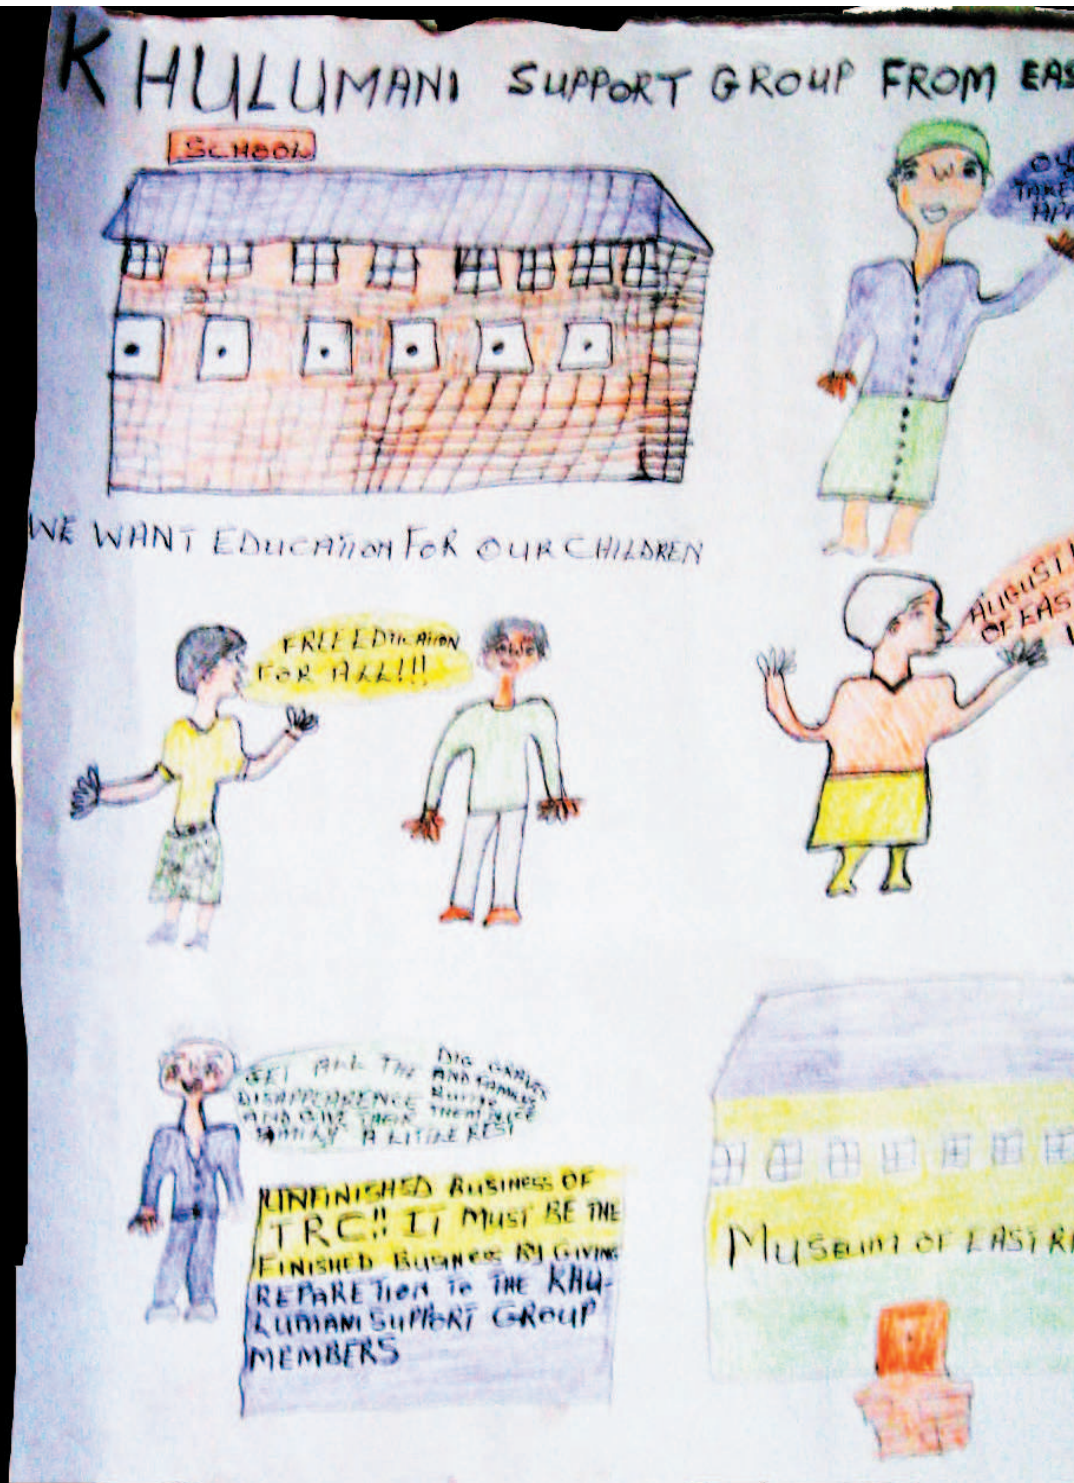 KHULUMANI SUPPORT GROUP FROM EAS
SCHOOL
WE WANT EDUCATION FOR OUR CHILDREN
FREE EDUCATION
FOR ALL!!!
AUGUST
OF EAS
GET ALL THE DIG GRAVES
DISAPPEARENCE AND FAMILIES
AND GIVE THEIR THEM NICE
FAMILY A LITTLE REST
UNFINISHED BUSINESS OF
TRC!! IT MUST BE THE
FINISHED BUSINESS BY GIVING
REPARETION TO THE KHU-
LUMANI SUPPORT GROUP
MEMBERS
MUSEUM OF EAST RA